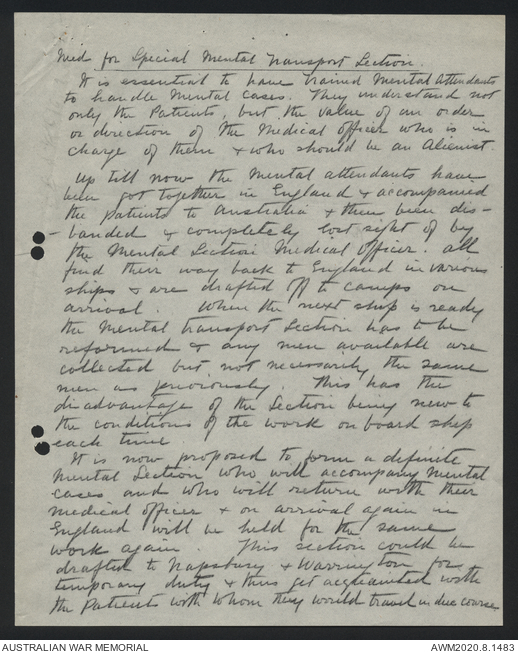 Need for Special Mental Transport Section.
It is essential to have trained Mental Attendants
to handle Mental Cases. They understand not
only the Patients, but the value of an order
or direction of the Medical Officer who is in
charge of them & who should be an Alienist.
Up till now the Mental attendants have
been got together in England & accompanied
the patients to Australia & then been dis-
banded & completely lost sight of by
the Mental Section Medical Officer. All
find their way back to England in various
ships & are drafted off to camps on
arrival. When the next ship is ready
the Mental Transport Section has to be
reformed & any men available are
collected but not necessarily the same
men as previously. This has the
disadvantage of the Section being new to
the conditions of the work on board ship
each time
It is now proposed to form a definite
Mental Section who will accompany Mental
cases and who will return with their
Medical officer & on arrival again in
England will be held for the same
work again. This section could be
drafted to Napsbury & Warrington for
temporary duty & thus get acquainted with
the Patients with whom they would travel in due course
AUSTRALIAN WAR MEMORIAL
AWM2020.8.1483